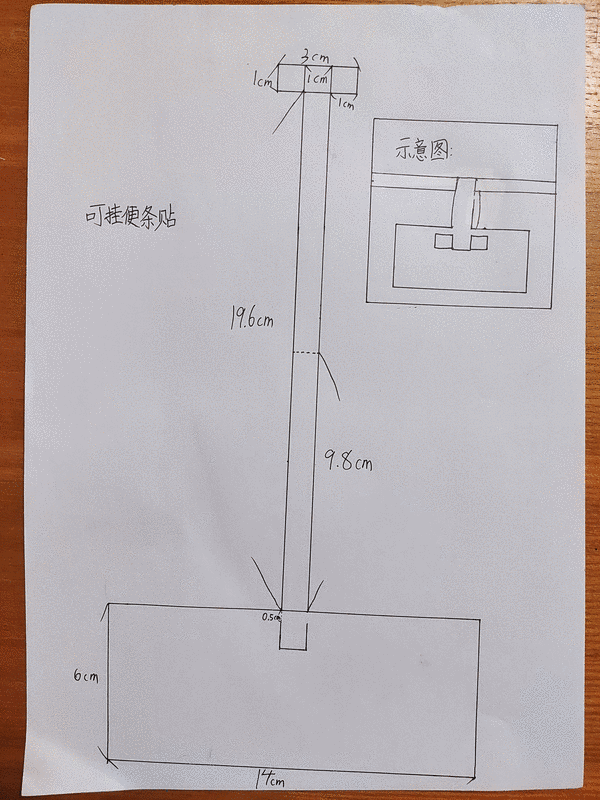 3cm
1cm
1cm
1cm
示意图:
可挂便条贴
19.6cm
9.8cm
0.5cm
6cm
14cm